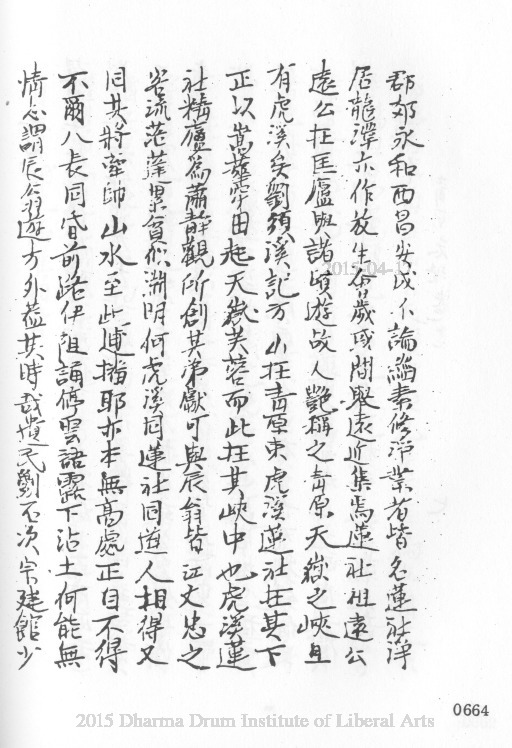 郡郊永和西昌安成不論緇素修淨業者皆名蓮社淨
居龍潭亦作放生會歲或間舉遠近集焉蓮社祖遠公
遠公在匡廬與諸賢遊故人艷稱之青原天嶽之峽且
有虎溪矣劉須溪記方山在青原東虎溪蓮社在其下
正以嵩華牢田起天嶽芙蓉而此在其峽中也虎溪蓮
社精廬為蕭靜觀所創其弟獻可與辰翁皆江文忠之
客流茫蓬累貧似淵明何虎溪同蓮社同道人相得又
同其將率帥山水至此連撥耶亦本無高處正自不得
不爾八表同昏前路伊阻誦停雲語露下沾土何能無
情心謂辰翁遊方外蓋其時哉遺民劉不次宗建館少
0664
2015-04-1
2015 Dharma Drum Institute of Liberal Arts